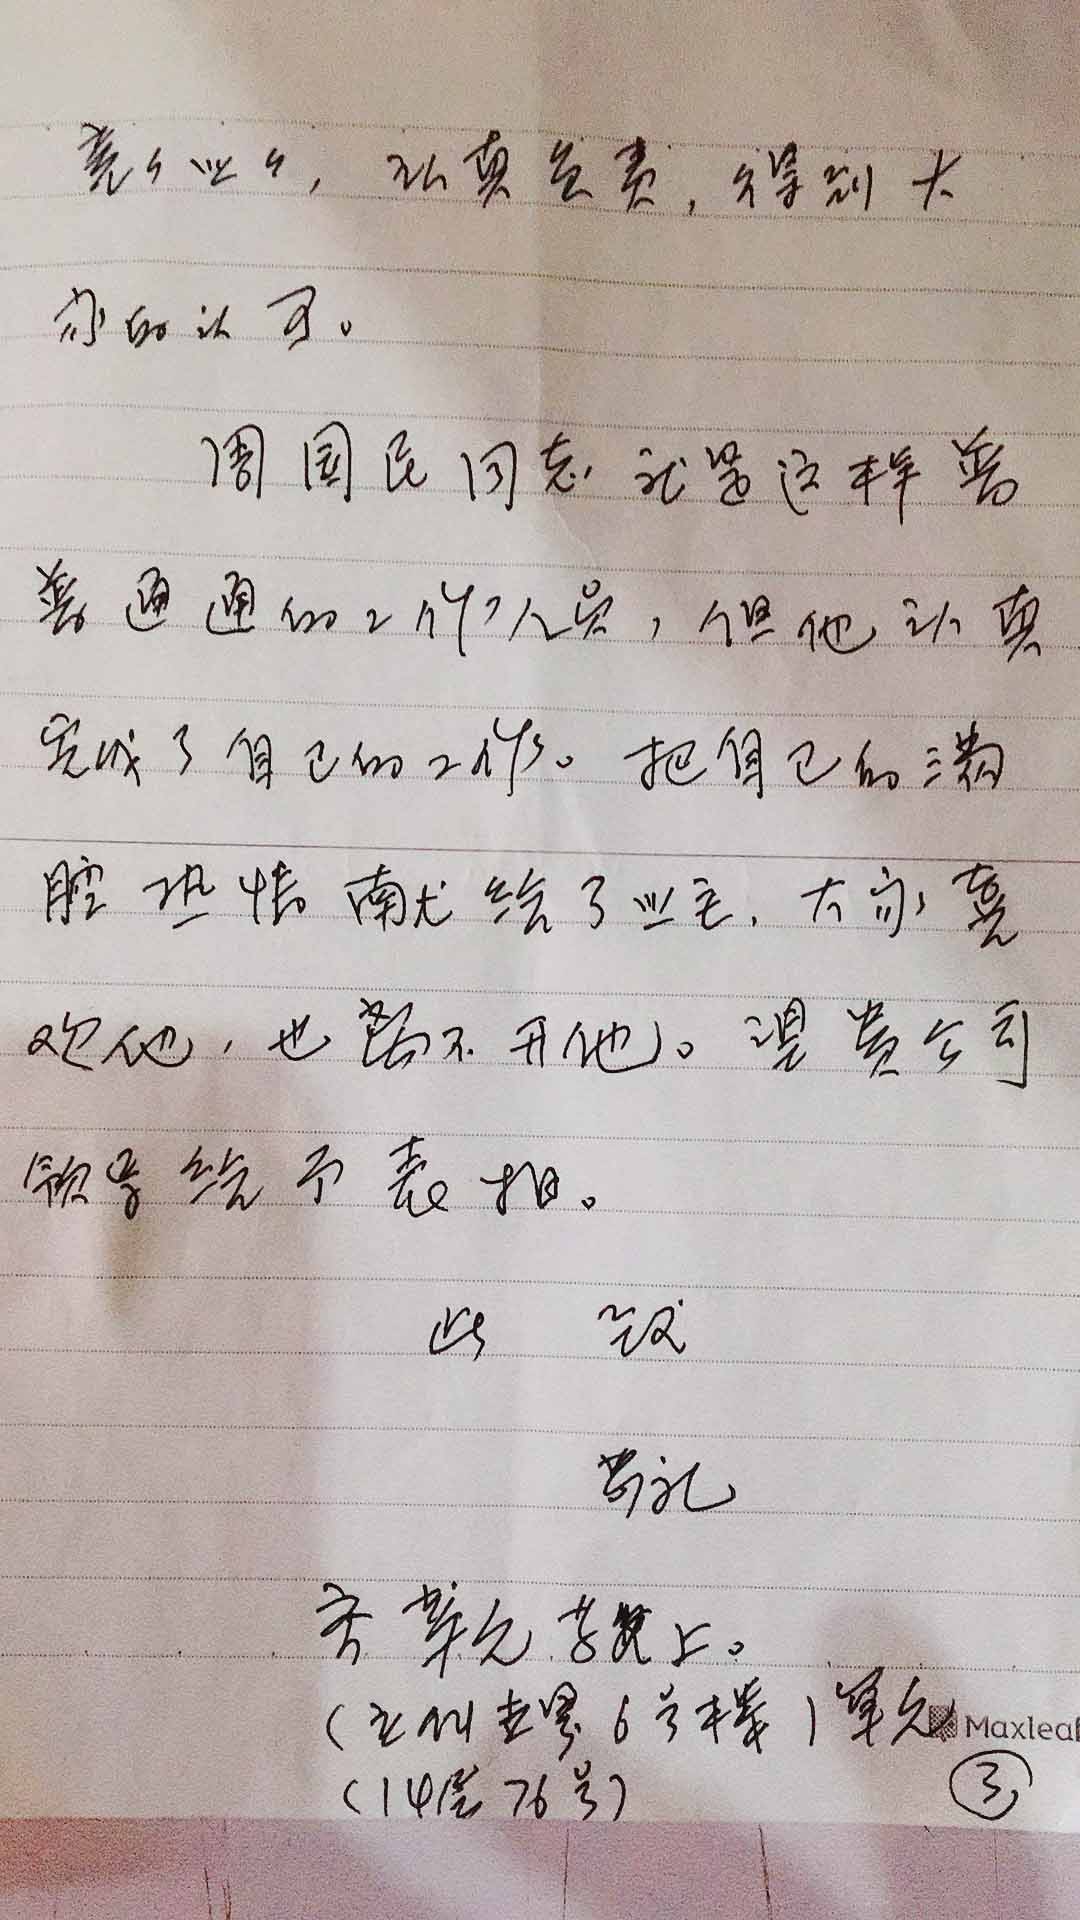 兢々业々，认真负责，得到大
家的认可。
周国民同志就是这样普
普通通的工作人员，但他认真
完成了自己的工作。把自己的满
腔热情献给了业主，大家喜
欢他，也离不开他。望贵公司
领导给予表扬。
此 致
敬礼
6号楼1单元
(14层76号)
Maxleaf
③